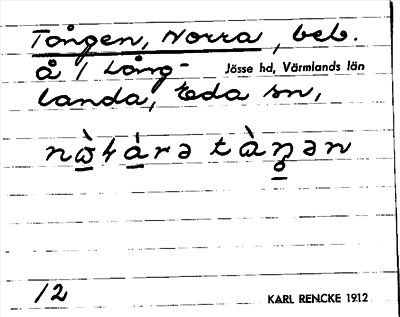 Tången, Norra, beb.
å 1 Lång-
Jösse hd, Värmlands län
landa, Eda sn,
12
KARL RENCKE 1912